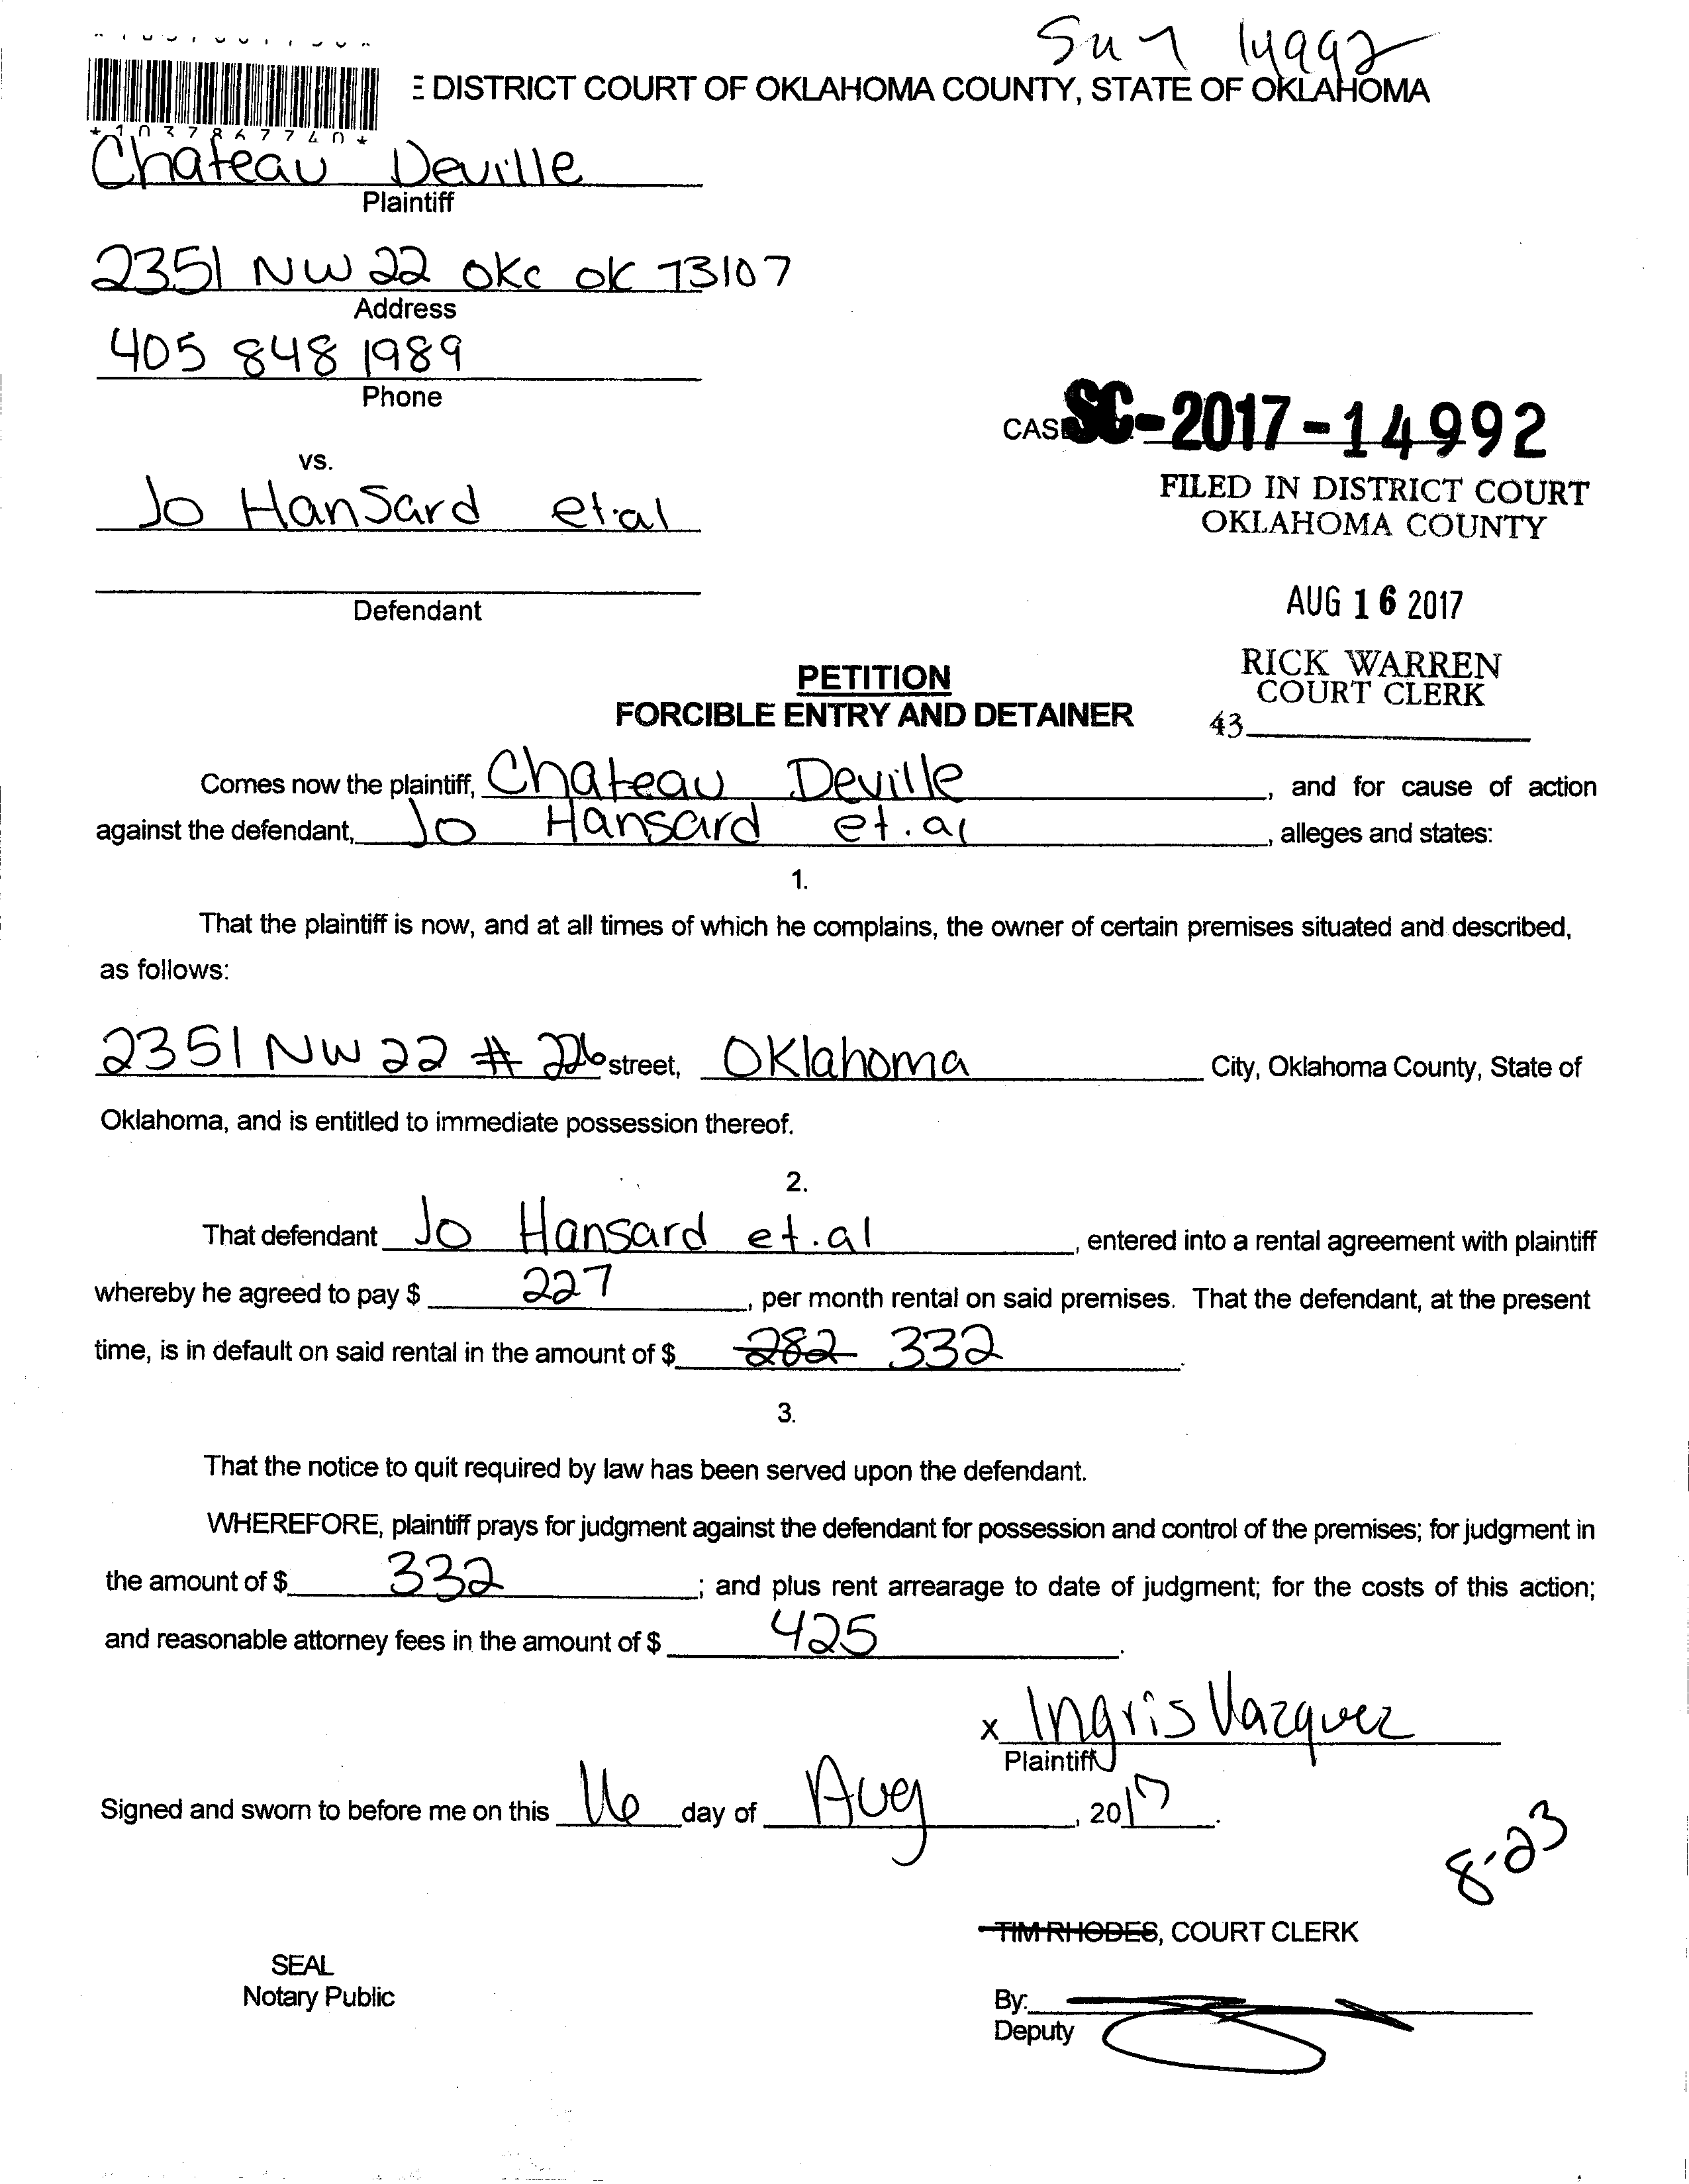 Su 7 14992
DISTRICT COURT OF OKLAHOMA COUNTY, STATE OF OKLAHOMA
*1037867740*
Chateau Deville
Plaintiff
2351 NW 22 OKC OK 73107
Address
405 848 1989
Phone
CAS SC-2017-14992
vs.
FILED IN DISTRICT COURT
OKLAHOMA COUNTY
Jo Hansard et.al
AUG 16 2017
Defendant
RICK WARREN
COURT CLERK
43
PETITION
FORCIBLE ENTRY AND DETAINER
Comes now the plaintiff, Chateau Deville, and for cause of action
against the defendant, Jo Hansard et.al, alleges and states:
1.
That the plaintiff is now, and at all times of which he complains, the owner of certain premises situated and described,
as follows:
2351 NW 22 # 226 street, Oklahoma City, Oklahoma County, State of
Oklahoma, and is entitled to immediate possession thereof.
2.
That defendant Jo Hansard et.al, entered into a rental agreement with plaintiff
whereby he agreed to pay $ 227, per month rental on said premises. That the defendant, at the present
time, is in default on said rental in the amount of $ 282 332.
3.
That the notice to quit required by law has been served upon the defendant.
WHEREFORE, plaintiff prays for judgment against the defendant for possession and control of the premises; for judgment in
the amount of $ 332; and plus rent arrearage to date of judgment; for the costs of this action;
and reasonable attorney fees in the amount of $ 425.
x Ingris Vazquez
Plaintiff
Signed and sworn to before me on this 16 day of Aug, 2017.
8-23
TIM RHODES, COURT CLERK
SEAL
Notary Public
By:
Deputy